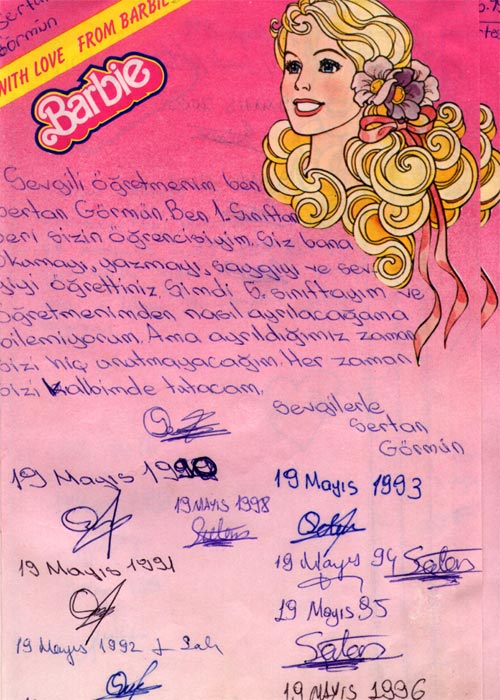 Sertan
Görmün
WITH LOVE FROM BARBIE
Barbie
Sevgili öğretmenim ben
Sertan Görmün. Ben 1. Sınıftan
beri sizin öğrencisiyim. Siz bana
okumayı, yazmayı, saygıyı ve sev
giyi öğrettiniz. Şimdi 5. sınıftayım ve
öğretmenimden nasıl ayrılacağama
bilemiyorum. Ama ayrıldığımız zaman
sizi hiç unutmayacağım. Her zaman
sizi kalbimde tutacam.
Sevgilerle
Sertan
Görmün
19 Mayıs 1990
19 MAYIS 1998
19 Mayıs 1991
19 Mayıs 1992
19 Mayıs 1993
19 Mayıs 94
19 Mayıs 95
19 MAYIS 1996